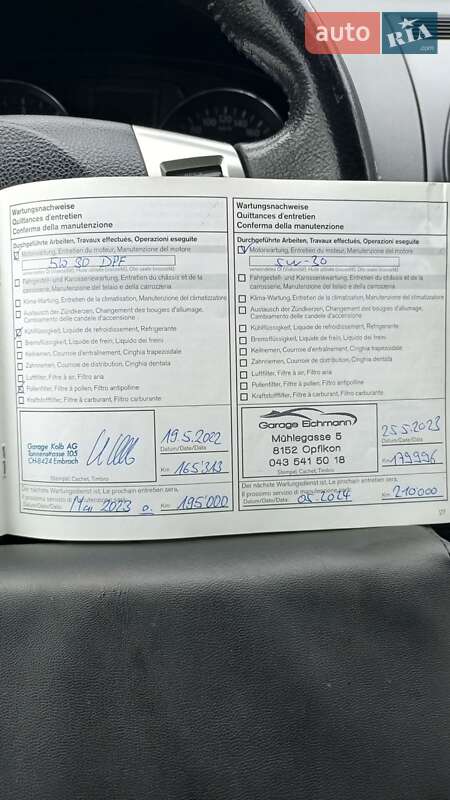 auto RIA.com
Wartungsnachweise
Quittances d'entretien
Conferma della manutenzione
Durchgeführte Arbeiten, Travaux effectués, Operazioni eseguite
Motorwartung, Entretien du moteur, Manutenzione del motore
5W 30 DPF
Fahrgestell- und Karosseriewartung, Entretien du châssis et de la carrosserie, Manutenzione del telaio e della carrozzeria
Klima-Wartung, Entretien de la climatisation, Manutenzione del climatizzatore
Austausch der Zündkerzen, Changement des bougies d'allumage,
Cambiamento delle candele d'accensione
Kühlflüssigkeit, Liquide de refroidissement, Refrigerante
Bremsflüssigkeit, Liquide de frein, Liquido dei freni
Keilriemen, Courroie d'entraînement, Cinghia trapezoidale
Zahnriemen, Courroie de distribution, Cinghia dentata
Luftfilter, Filtre à air, Filtro aria
Pollenfilter, Filtre à pollen, Filtro antipolline
Kraftstofffilter, Filtre à carburant, Filtro carburante
Garage Kolb AG
Tannenstrasse 105
CH-8424 Embrach
Stempel, Cachet, Timbro
19.5.2022
Datum/Date/Data
Km: 165.313
Der nächste Wartungsdienst ist, Le prochain entretien sera,
Il prossimo servizio di manutenzione sarà:
Mai 2023 o. Km: 195'000
Wartungsnachweise
Quittances d'entretien
Conferma della manutenzione
Durchgeführte Arbeiten, Travaux effectués, Operazioni eseguite
Motorwartung, Entretien du moteur, Manutenzione del motore
5w-30
Fahrgestell- und Karosseriewartung, Entretien du châssis et de la
carrosserie, Manutenzione del telaio e della carrozzeria
Klima-Wartung, Entretien de la climatisation, Manutenzione del climatizzatore
Austausch der Zündkerzen, Changement des bougies d'allumage,
Cambiamento delle candele d'accensione
Kühlflüssigkeit, Liquide de refroidissement, Refrigerante
Bremsflüssigkeit, Liquide de frein, Liquido dei freni
Keilriemen, Courroie d'entraînement, Cinghia trapezoidale
Zahnriemen, Courroie de distribution, Cinghia dentata
Luftfilter, Filtre à air, Filtro aria
Pollenfilter, Filtre à pollen, Filtro antipolline
Kraftstofffilter, Filtre à carburant, Filtro carburante
Garage Eichmann
Mühlegasse 5
8152 Opfikon
043 541 50 18
Stempel, Cachet, Timbro
25.5.2023
Datum/Date/Data
Km: 179996
Der nächste Wartungsdienst ist, Le prochain entretien sera,
Il prossimo servizio di manutenzione sarà:
05.2024 Km: 210'000